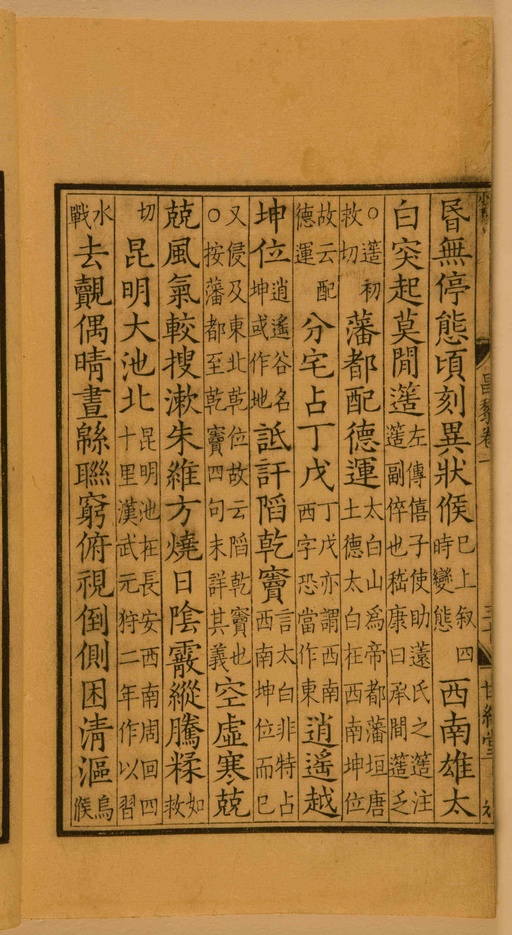 昏無停態頃刻異狀候巳上叙四時變態西南雄太
白突起莫閒簉左傳僖子使助薳氏之簉注簉副倅也嵇康曰承間簉乏
○簉初救切藩都配德運太白山爲帝都藩垣唐土德太白在西南坤位
故云配德運分宅占丁戊丁戊亦謂西南西字恐當作東逍遙越
坤位逍遙谷名坤或作地詆訐陷乾竇言太白非特占西南坤位而已
又侵及東北乾位故云陷乾竇也○按藩都至乾竇四句未詳其義空虛寒兢
兢風氣較搜漱朱維方燒日陰霰縱騰糅如救
切昆明大池北昆明池在長安西南周回四十里漢武元狩二年作以習
水戰去覿偶晴晝緜聯窮俯視倒側困清漚烏候